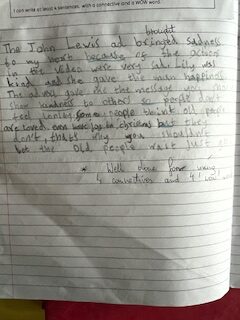 I can write at least 4 sentences, with a connective and a WOW word.
brought
The John Lewis ad bringed sadness
to my hort because of the actors
in the video were very sad. Lily was
kind and she gave the man happiness
The advert gave me the message you
show kindness to other so people don't
feel lonley some people think old people
are loved even have joy in christmas but they
don't, that's why you shouldn't
let the old people wait just
* Well done for using
4 connectives and 4 'wow'